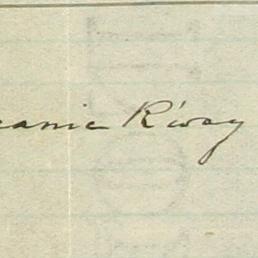 eanic R'way